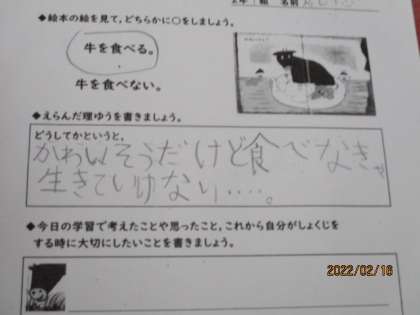 2年1組 名前
◆絵本の絵を見て,どちらかに○をしましょう。
牛を食べる。
牛を食べない。
◆えらんだ理ゆうを書きましょう。
どうしてかというと,
かわいそうだけど食べなきゃ
生きていけない‥‥。
◆今日の学習で考えたことや思ったこと,これから自分がしょくじを
する時に大切にしたいことを書きましょう。
2022/02/16